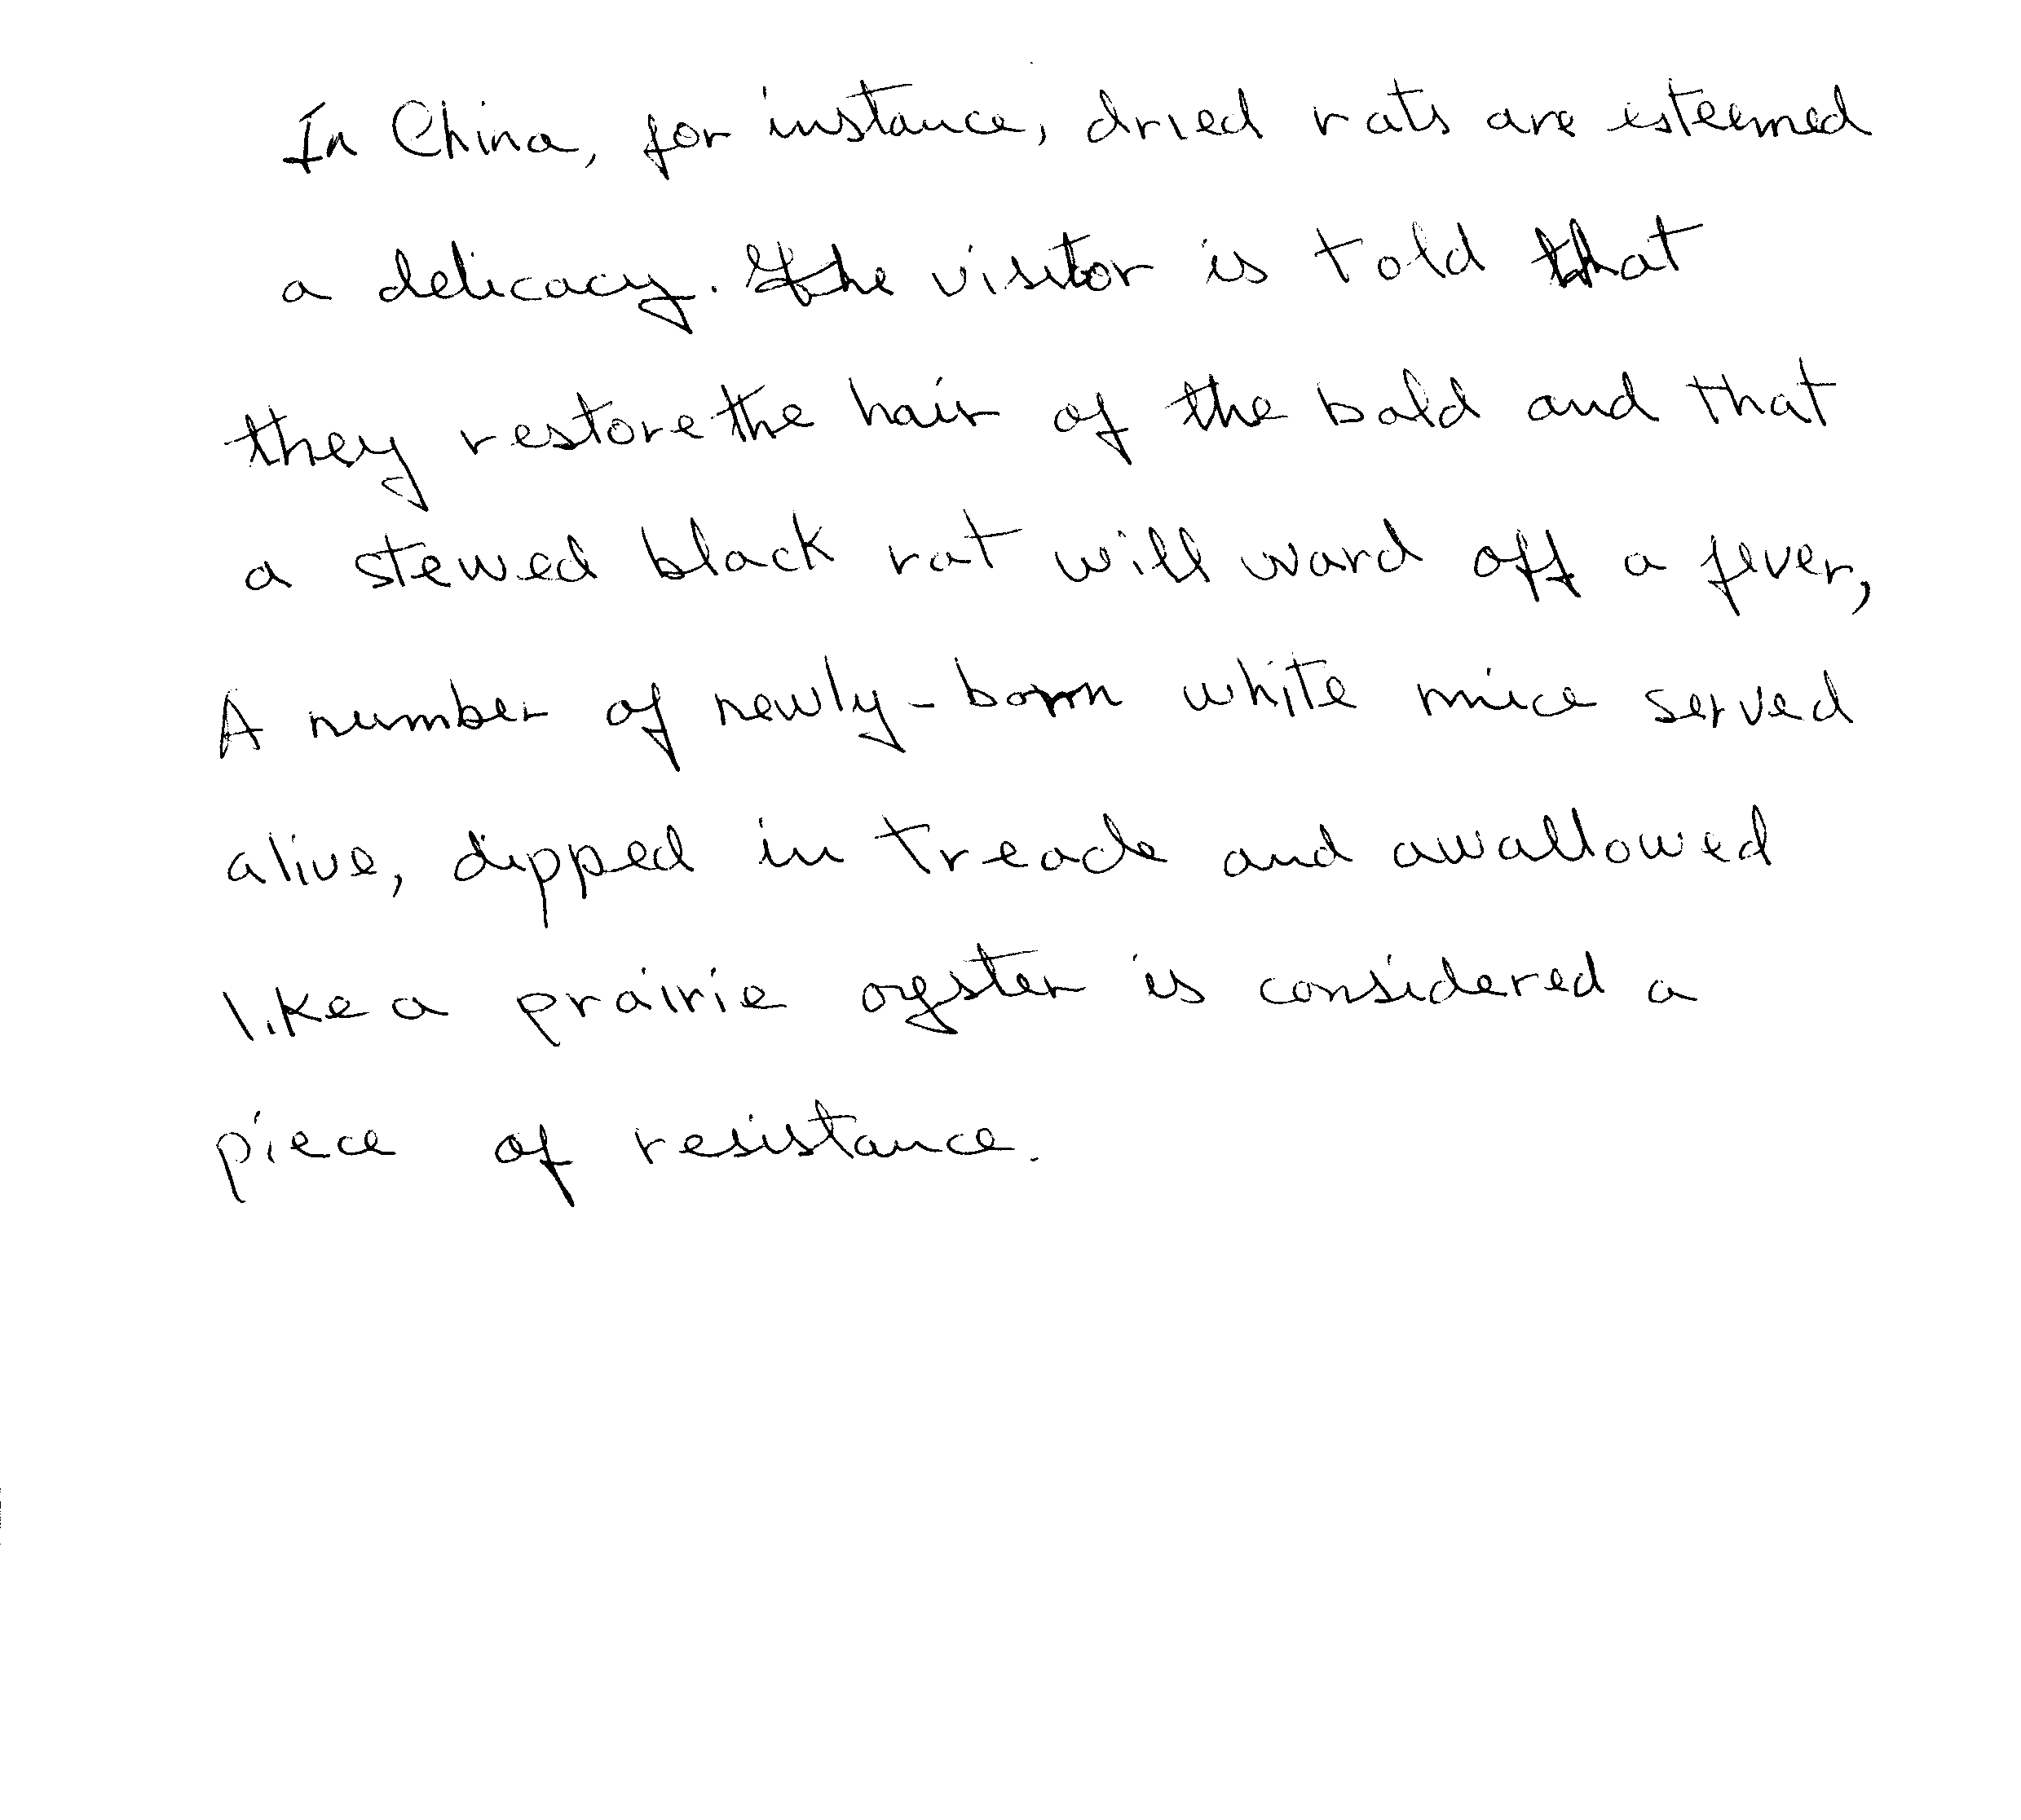 In China, for instance, dried rats are esteemed
a delicacy. The visitor is told that
they restore the hair of the bald and that
a stewed black rat will ward off a fever,
A number of newly-born white mice served
alive, dipped in treacle and swallowed
like a prairie oyster is considered a
piece of resistance.